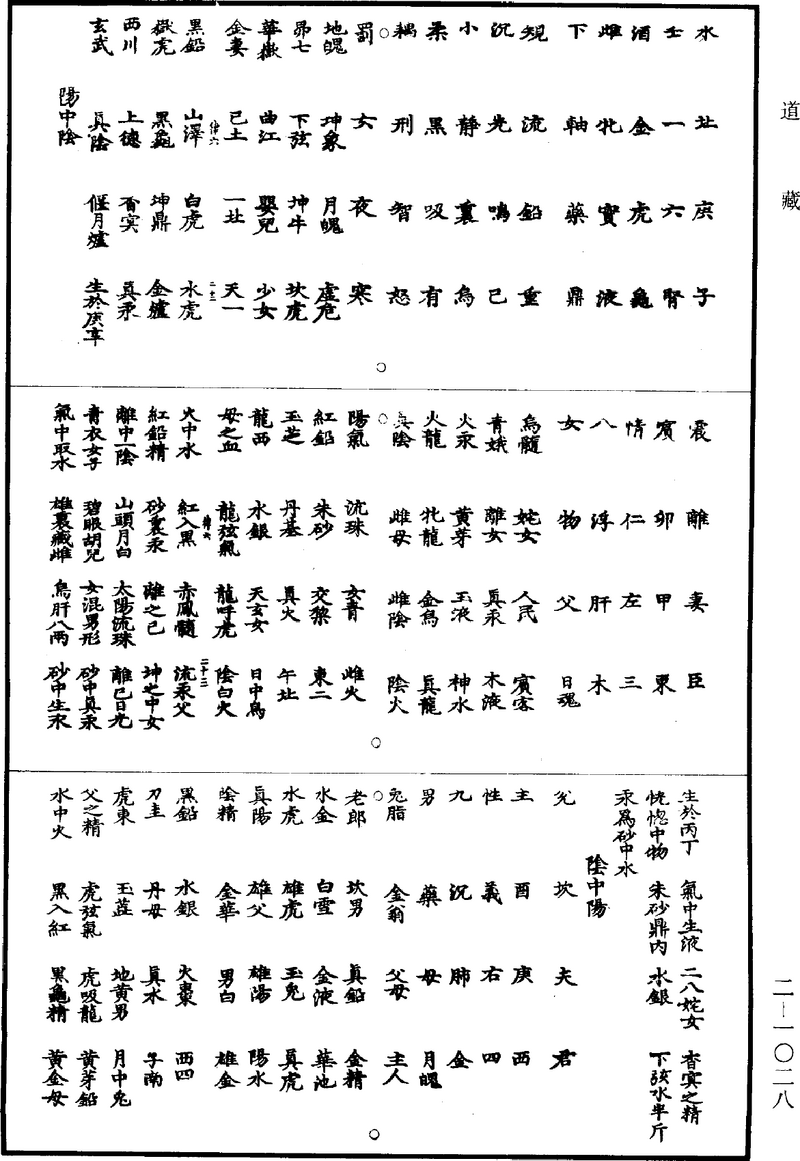 道藏
水 北 庚 子
壬 一 六 腎
酒 金 虎 龜
雌 牝 實 液
下 軸 藥 鼎
規 流 鉛 重
沉 光 鳴 己
小 靜 裏 烏
柔 黑 吸 有
耦 刑 智 怒
○罰 女 夜 寒
地魄 坤象 月魄 虛危
昴七 下弦 坤牛 坎虎
華嶽 曲江 嬰兒 少女
金妻 己土 一北 天一
黑鉛 山澤 白虎 水虎
嶽虎 黑龜 坤鼎 金爐
西川 上德 杳冥 真汞
玄武 真陰 偃月爐 生於庚辛
陽中陰
○
震 離 妻 臣
賓 卯 甲 東
情 仁 左 三
八 浮 肝 木
女 物 父 日魂
烏髓 姹女 人民 賓客
青娥 離女 真汞 木液
火汞 黃芽 玉液 神水
火龍 牝龍 金烏 真龍
真陰 雌母 雌陰 陰火
○陽氣 流珠 女青 雌火
紅鉛 朱砂 交黎 東二
玉芝 丹基 真火 午北
龍西 水銀 天玄女 日中烏
母之血 龍弦氣 龍呼虎 陰白火
火中水 紅入黑 赤鳳髓 流汞父
二十三
紅鉛精 砂裏汞 離之己 坤之中女
離中一陰 山頭月白 太陽流珠 離己日光
青衣女子 碧眼胡兒 女混男形 砂中真汞
氣中取水 雄裏藏雌 烏肝八兩 砂中生汞
○
生於丙丁 氣中生液 二八姹女 杳冥之精
恍惚中物 朱砂鼎內 水銀 下弦水半斤
汞為砂中水
陰中陽
兌 坎 夫 君
主 酉 庚 西
性 義 右 四
九 沉 肺 金
男 藥 母 月魄
兔脂 金翁 父母 主人
○老郎 坎男 真鉛 金精
水金 白雪 金液 華池
水虎 雄虎 玉兔 真虎
真陽 雄父 雄陽 陽水
陰精 金華 男白 雄金
黑鉛 水銀 火棗 西四
刀圭 丹母 真水 子南
虎東 玉蕋 地黃男 月中兔
父之精 虎弦氣 虎吸龍 黃芽鉛
水中火 黑入紅 黑龜精 黃金母
○
二—一〇二八